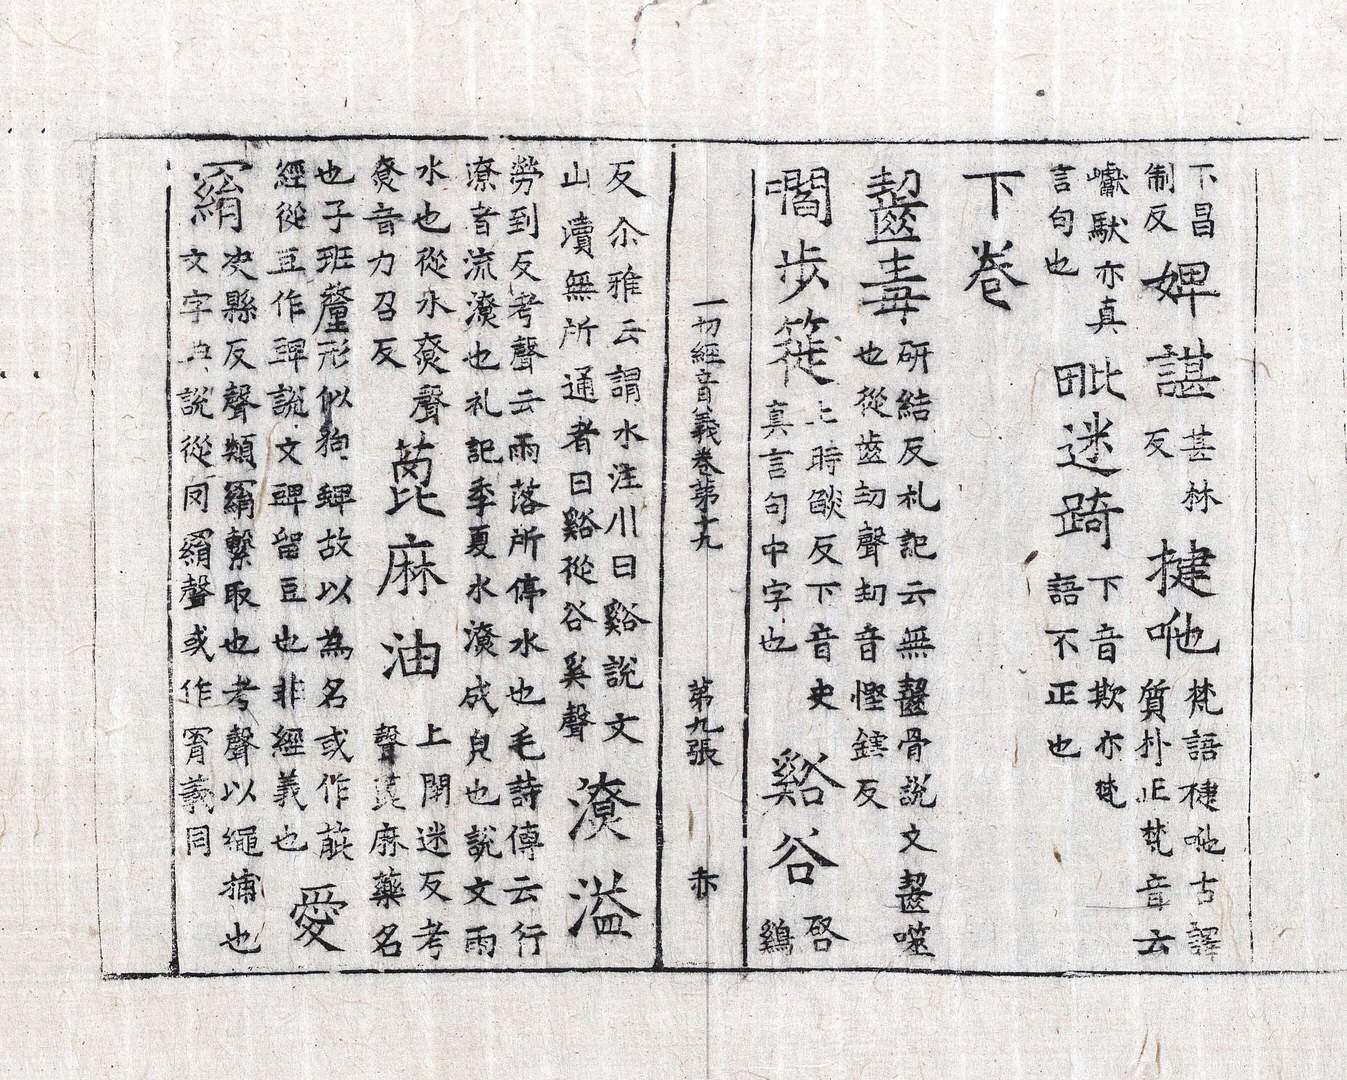 下昌
制反
婢諶
甚林
反
揵哋
梵語揵哋古譯
質朴正梵音云
巘馱亦真
言句也
毗迷踦
下音欺亦梵
語不正也
下卷
齧毒
研結反礼記云無齧骨說文齧噬
也從齒㓞聲㓞音慳鎋反
嚪步簁
上時燄反下音史
真言句中字也
谿谷
啓
鷄
一切經音義卷第十九 第九張 赤
反尒雅云謂水注川曰谿說文
山瀆無所通者曰谿從谷奚聲
潦溢
勞到反考聲云雨落所停水也毛詩傳云行
潦音流潦也礼記季夏水潦成皃也說文雨
水也從水尞聲
尞音力召反
萞麻油
上閇迷反考
聲萞麻藥名
也子班形似狗蜱故以為名或作蓖
經從豆作𧯷說文𧯷留豆也非經義也
愛
羂
决縣反聲類羂繫取也考聲以繩捕也
文字典說從网羂聲或作罥義同